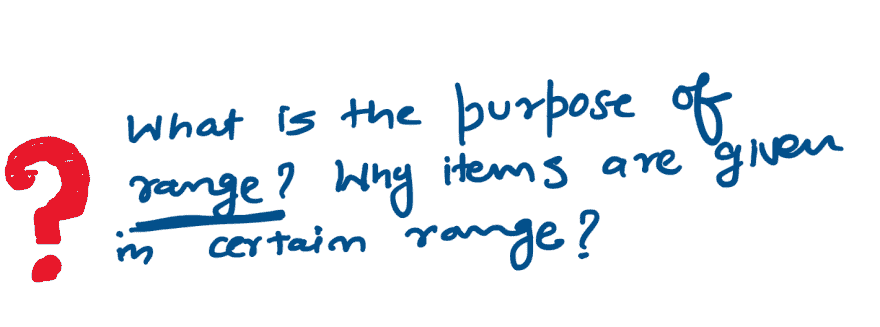 What is the purpose of
range? Why items are given
in certain range?